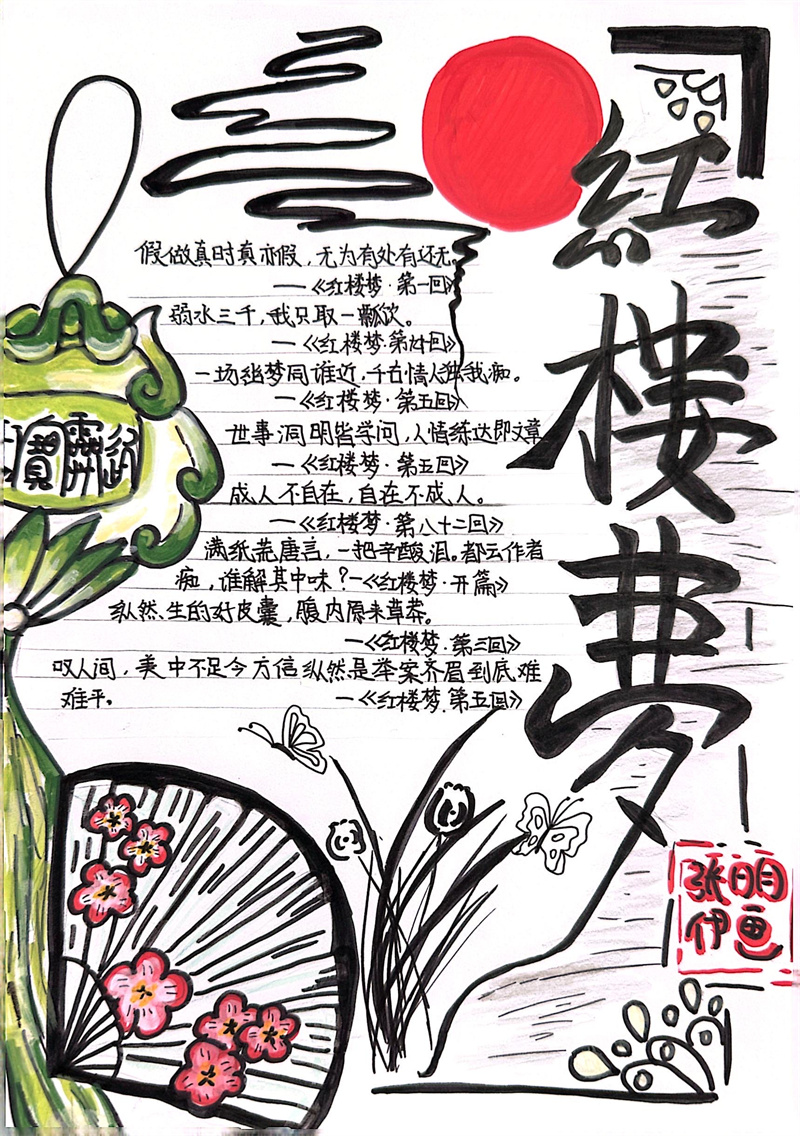 紅楼夢
假做真时真亦假，无为有处有还无。
——《红楼梦·第一回》
弱水三千，我只取一瓢饮。
—《红楼梦·第九十回》
一场幽梦同谁近，千古情人独我痴。
—《红楼梦·第五回》
世事洞明皆学问，人情练达即文章
—《红楼梦·第五回》
成人不自在，自在不成人。
—《红楼梦·第八十二回》
满纸荒唐言，一把辛酸泪。都云作者
痴，谁解其中味？—《红楼梦·开篇》
纵然生的好皮囊，腹内原来草莽。
—《红楼梦·第三回》
叹人间，美中不足今方信纵然是举案齐眉到底难
难平。 —《红楼梦·第五回》
寶靈通
张明
伊画